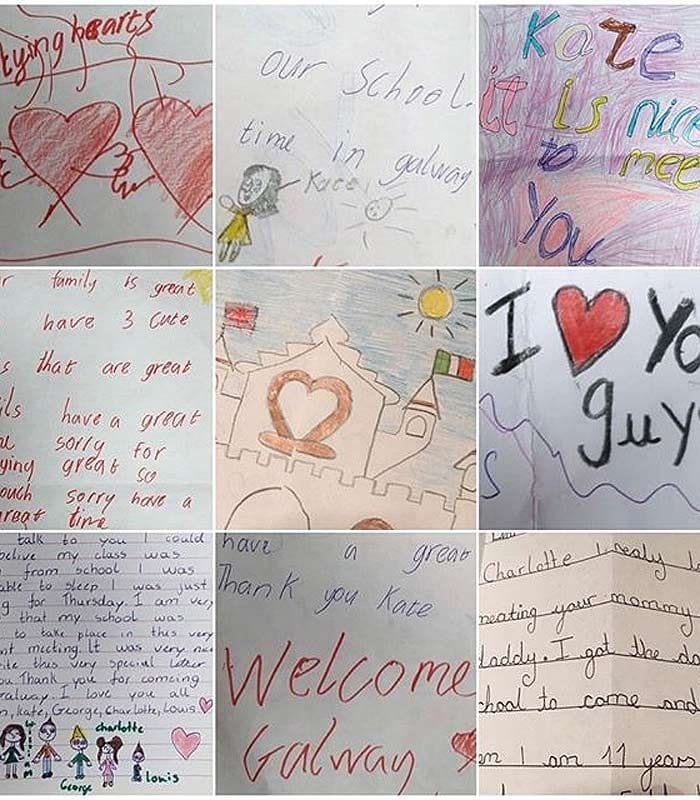 tying hearts
our School.
time in galway
Kate
Kate
it is nice
to mee
You
family is great
have 3 cute
s that are great
have a great
sorry for
ying great so
ouch sorry have a
great time
I ❤ Yo
guy
S
talk to you I could
belive my class was
from school I was
able to sleep I was just
g for Thursday. I am very
that my school was
to take place in this very
nt meeting. It was very nice
ite this very special letter
ou Thank you for comeing
Galway. I love you all
n, Kate, George, Charlotte, Louis.
charlotte
George
Louis
have a great
Thank you Kate
Welcome
Galway
Charlotte I realy l
meating your mommy
daddy. I got the da
chool to come and
en I am 11 years